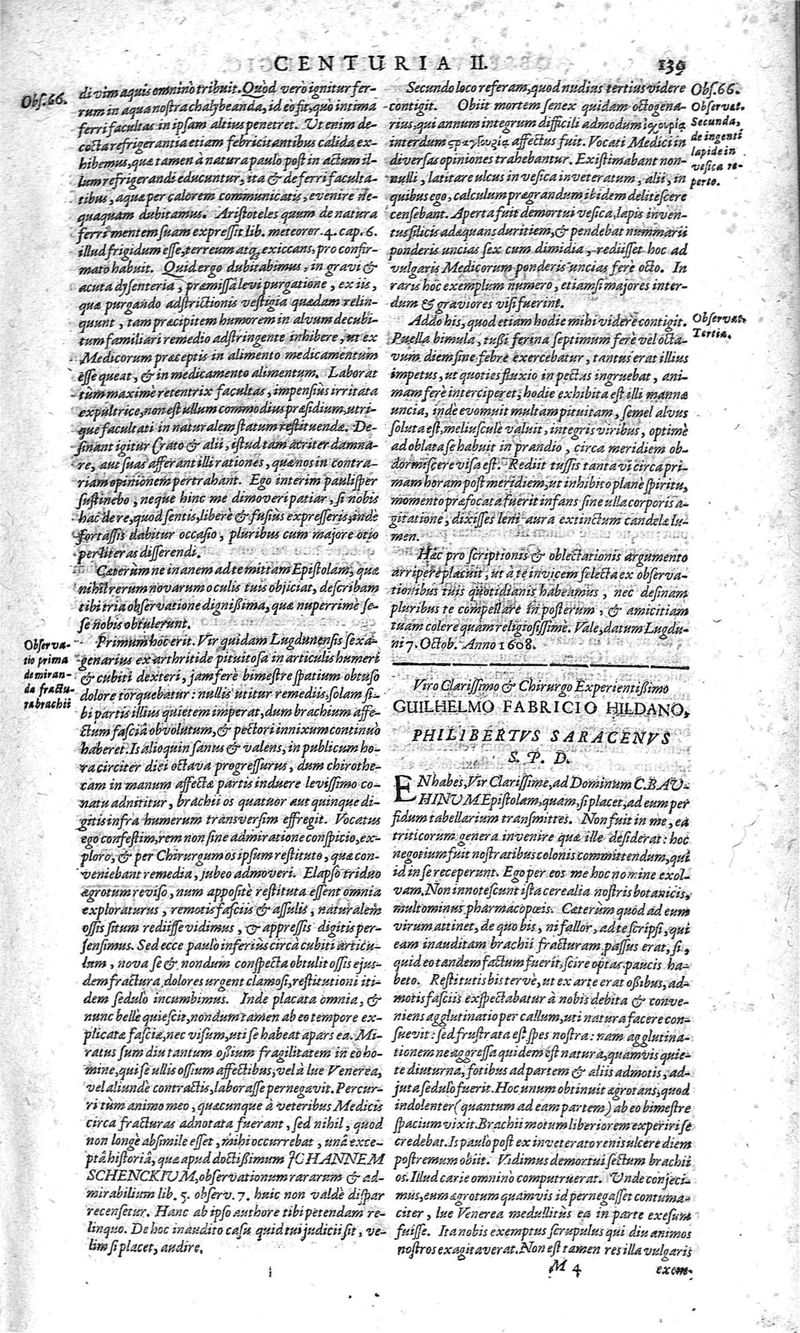 CENTURIA II. 139
Obs. 66.
di vim aquis omnino tribuit. Quòd verò ignitur fer-
rum in aqua nostra chalybeanda, id eò fit, quo intima
ferri facultas in ipsam altius penetret. Ut enim de-
cocta refrigerantia etiam febricitantibus calida ex-
hibemus, quæ tamen à natura paulo post in actum il-
lum refrigerandi educuntur, ita & de ferri faculta-
tibus, aquæ per calorem communicatis, evenire ne-
quaquam dubitamus. Aristoteles quum de natura
ferri mentem suam expressit lib. meteoror. 4. cap. 6.
illud frigidum esse, terreum atq; exiccans, pro confir-
mato habuit. Quid ergo dubitabimus, in gravi &
acuta dysenteria, præmissa levi purgatione, ex iis,
quæ purgando adstrictionis vestigia quædam relin-
quunt, tam præcipitem humorem in alvum decubi-
tum familiari remedio adstringente inhibere, ut ex
Medicorum præceptis in alimento medicamentum
esse queat, & in medicamento alimentum. Laborat
tùm maximè retentrix facultas, impensiùs irritata
expultrice, non est ullum commodius præsidium, utri-
que facultati in naturalem statum restituendæ. De-
sinant igitur Crato & alii, istud tam acriter damna-
re, aut suas afferant illi rationes, quæ nos in contra-
riam opinionem pertrahant. Ego interim paulisper
sustinebo, neque hinc me dimoveri patiar, si nobis
hac de re, quod sentis, liberè & fusiùs expresseris, inde
fortassis dabitur occasio, pluribus cum majore otio
per literas disserendi.
Cæterùm ne inanem ad te mittam Epistolam, quæ
nihil rerum novarum oculis tuis objiciat, describam
tibi tria observatione dignissima, quæ nuperrimè se-
se nobis obtulerunt.
Observa-
tio prima
de miran-
da fractu-
ra brachii
Primum hoc erit. Vir quidam Lugdunensis sexa-
genarius ex arthritide pituitosa in articulis humeri
& cubiti dexteri, jam ferè bimestre spatium obtuso
dolore torquebatur: nullis utitur remediis, solam si-
bi partis illius quietem imperat, dum brachium affe-
ctum fascia obvolutum, & pectori innixum continuò
haberet. Is alioquin sanus & valens, in publicum ho-
ra circiter diei octava progressurus, dum chirothe-
cam in manum affectæ partis induere levissimo co-
natu adnititur, brachii os quatuor aut quinque di-
gitis infra humerum transversim effregit. Vocatus
ego confestim, rem non sine admiratione conspicio, ex-
ploro, & per Chirurgum os ipsum restituto, quæ con-
veniebant remedia, jubeo admoveri. Elapso triduo
ægrotum reviso, num appositè restituta essent omnia
exploraturus, remotis fasciis & assulis, naturalem
ossis situm rediisse vidimus, & appressis digitis per-
sensimus. Sed ecce paulo inferiùs circà cubiti articu-
lum, nova se & nondum conspecta obtulit ossis ejus-
dem fractura, dolores urgent clamosi, restitutioni iti-
dem sedulo incumbimus. Inde placata omnia, &
nunc bellè quiescit, nondum tamen ab eo tempore ex-
plicata fascia, nec visum, uti se habeat pars ea. Mi-
ratus sum diu tantum ossium fragilitatem in eo ho-
mine, qui se ullis ossium affectibus, vel à lue Venerea,
vel aliunde contractis, laborasse pernegavit. Percur-
ri tùm animo meo, quæcunque à veteribus Medicis
circa fracturas adnotata fuerant, sed nihil, quod
non longè absimile esset, mihi occurrebat, unâ exce-
ptâ historiâ, quæ apud doctissimum JOHANNEM
SCHENCKIUM, observationum rararum & ad-
mirabilium lib. 5. observ. 7. huic non valdè dispar
recensetur. Hanc ab ipso authore tibi petendam re-
linquo. De hoc inaudito casu quid tui judicii sit, ve-
lim si placet, audire.
Secundo loco referam, quod nudius tertius videre
contigit. Obiit mortem senex quidam octogena-
rius, qui annum integrum difficili admodum ἰσχουρίᾳ
interdum στραγγουρίᾳ affectus fuit. Vocati Medici in
diversas opiniones trahebantur. Existimabant non-
nulli, latitare ulcus in vesica inveteratum, alii, in
quibus ego, calculum prægrandum ibidem delitescere
censebant. Aperta fuit demortui vesica, lapis inven-
tus silicis adæquans duritiem, & pendebat nummarii
ponderis uncias sex cum dimidia, rediisset hoc ad
vulgaris Medicorum ponderis uncias ferè octo. In
raris hoc exemplum numero, etiamsi majores inter-
dum & graviores visi fuerint.
Obs. 66.
Observat.
Secunda,
de ingenti
lapide in
vesica re-
perto.
Addo his, quod etiam hodie mihi videre contigit.
Puella bimula, tussi ferina septimum ferè vel octa-
vum diem sine febre exercebatur, tantus erat illius
impetus, ut quoties fluxio in pectus ingruebat, ani-
mam ferè interciperet; hodie exhibita est illi mannæ
uncia, inde evomuit multam pituitam, semel alvus
soluta est, meliuscule valuit, integris viribus, optimè
ad oblata se habuit in prandio, circa meridiem ob-
dormiscere visa est. Rediit tussis tanta vi circa pri-
mam horam post meridiem, ut inhibito planè spiritu,
momento præfocata fuerit infans sine ulla corporis a-
gitatione, dixisses leni aura extinctum candelæ lu-
men.
Observat.
Tertia.
Hæc pro scriptionis & oblectationis argumento
arripere placuit, ut à te invicem selecta ex observa-
tionibus tuis quotidianis habeamus, nec desinam
pluribus te compellare in posterum, & amicitiam
tuam colere quàm religiosissimè. Vale, datum Lugdu-
ni 7. Octob. Anno 1608.
Viro Clarissimo & Chirurgo Experientissimo
GUILHELMO FABRICIO HILDANO,
PHILIBERTVS SARACENVS
S. P. D.
EN habes, Vir Clarissime, ad Dominum C. BAU-
HINUM Epistolam, quam, si placet, ad eum per
fidum tabellarium transmittes. Non fuit in me, ea
triticorum genera invenire quæ ille desiderat: hoc
negotium fuit nostratibus colonis committendum, qui
id in se receperunt. Ego per eos me hoc nomine exol-
vam, Non innotescunt ista cerealia nostris botanicis,
multominus pharmacopœis. Cæterùm quòd ad eum
virum attinet, de quo bis, ni fallor, ad te scripsi, qui
eam inauditam brachii fracturam passus erat, si,
quid eo tandem factum fuerit, scire optas, paucis ha-
beto. Restitutis bis tervè, ut ex arte erat ossibus, ad-
motis fasciis exspectabatur à nobis debita & conve-
niens agglutinatio per callum, uti natura facere con-
suevit: sed frustrata est spes nostra: nam agglutina-
tionem ne aggressa quidem est natura, quamvis quie-
te diuturna, fotibus ad partem & aliis admotis, ad-
juta sedulo fuerit. Hoc unum obtinuit ægrotans, quod
indolenter (quantum ad eam partem) ab eo bimestre
spacium vixit. Brachii motum liberiorem experiri se
credebat. Is paulo post ex inveterato renis ulcere diem
postremum obiit. Vidimus demortui sectum brachii
os. Illud carie omnino computruerat. Unde conjeci-
mus, eum ægrotum quamvis id pernegasset contuma-
citer, lue Venerea medullitùs ea in parte exesum
fuisse. Ita nobis exemptus scrupulus qui diu animos
nostros exagitaverat. Non est tamen res illa vulgaris
M 4 exem-